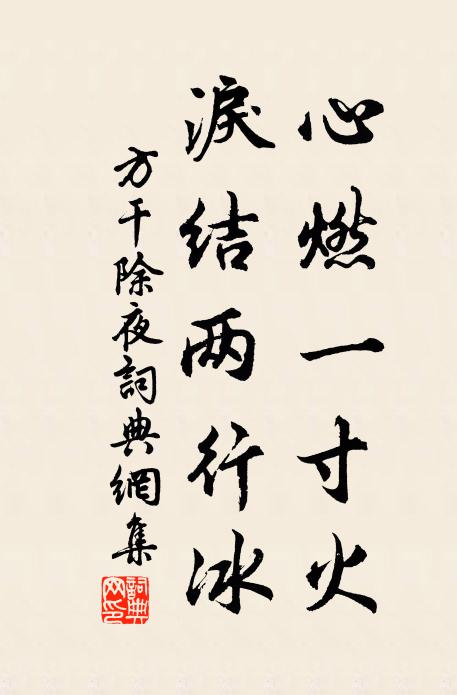 心燃一寸火
淚结两行冰
方干除夜詞典網集
詞典网印